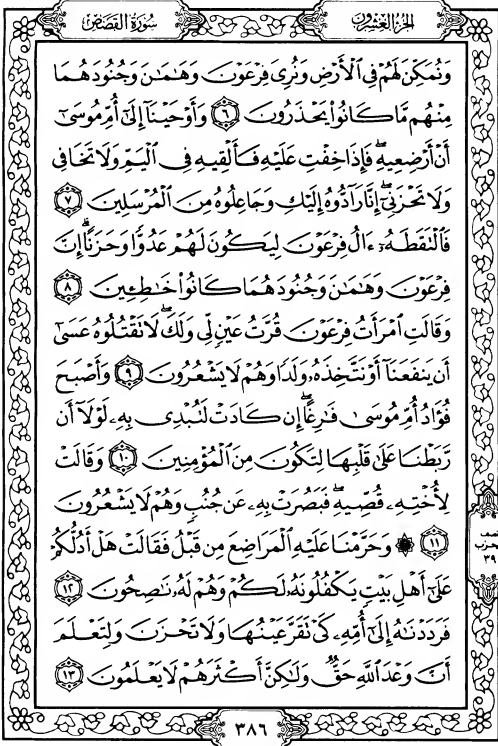 سُورَةُ القَصَصِ
الجُزْءُ العِشْرُونَ
وَنُمَكِّنَ لَهُمْ فِي ٱلْأَرْضِ وَنُرِىَ فِرْعَوْنَ وَهَٰمَٰنَ وَجُنُودَهُمَا
مِنْهُم مَّا كَانُوا۟ يَحْذَرُونَ ٦ وَأَوْحَيْنَآ إِلَىٰٓ أُمِّ مُوسَىٰٓ
أَنْ أَرْضِعِيهِ ۖ فَإِذَا خِفْتِ عَلَيْهِ فَأَلْقِيهِ فِى ٱلْيَمِّ وَلَا تَخَافِى
وَلَا تَحْزَنِىٓ ۖ إِنَّا رَآدُّوهُ إِلَيْكِ وَجَاعِلُوهُ مِنَ ٱلْمُرْسَلِينَ ٧
فَٱلْتَقَطَهُۥٓ ءَالُ فِرْعَوْنَ لِيَكُونَ لَهُمْ عَدُوًّا وَحَزَنًا ۗ إِنَّ
فِرْعَوْنَ وَهَٰمَٰنَ وَجُنُودَهُمَا كَانُوا۟ خَٰطِـِٔينَ ٨
وَقَالَتِ ٱمْرَأَتُ فِرْعَوْنَ قُرَّتُ عَيْنٍ لِّى وَلَكَ ۖ لَا تَقْتُلُوهُ عَسَىٰٓ
أَن يَنفَعَنَآ أَوْ نَتَّخِذَهُۥ وَلَدًا وَهُمْ لَا يَشْعُرُونَ ٩ وَأَصْبَحَ
فُؤَادُ أُمِّ مُوسَىٰ فَٰرِغًا ۖ إِن كَادَتْ لَتُبْدِى بِهِۦ لَوْلَآ أَن
رَّبَطْنَا عَلَىٰ قَلْبِهَا لِتَكُونَ مِنَ ٱلْمُؤْمِنِينَ ١٠ وَقَالَتْ
لِأُخْتِهِۦ قُصِّيهِ ۖ فَبَصُرَتْ بِهِۦ عَن جُنُبٍ وَهُمْ لَا يَشْعُرُونَ
١١ ۞ وَحَرَّمْنَا عَلَيْهِ ٱلْمَرَاضِعَ مِن قَبْلُ فَقَالَتْ هَلْ أَدُلُّكُمْ
عَلَىٰٓ أَهْلِ بَيْتٍ يَكْفُلُونَهُۥ لَكُمْ وَهُمْ لَهُۥ نَٰصِحُونَ ١٢
فَرَدَدْنَٰهُ إِلَىٰٓ أُمِّهِۦ كَىْ تَقَرَّ عَيْنُهَا وَلَا تَحْزَنَ وَلِتَعْلَمَ
أَنَّ وَعْدَ ٱللَّهِ حَقٌّ وَلَٰكِنَّ أَكْثَرَهُمْ لَا يَعْلَمُونَ ١٣
٣٩
٣٨٦